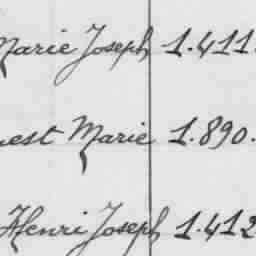 Marie Joseph 1.411.
uest Marie 1.890.
Henri Joseph 1.412